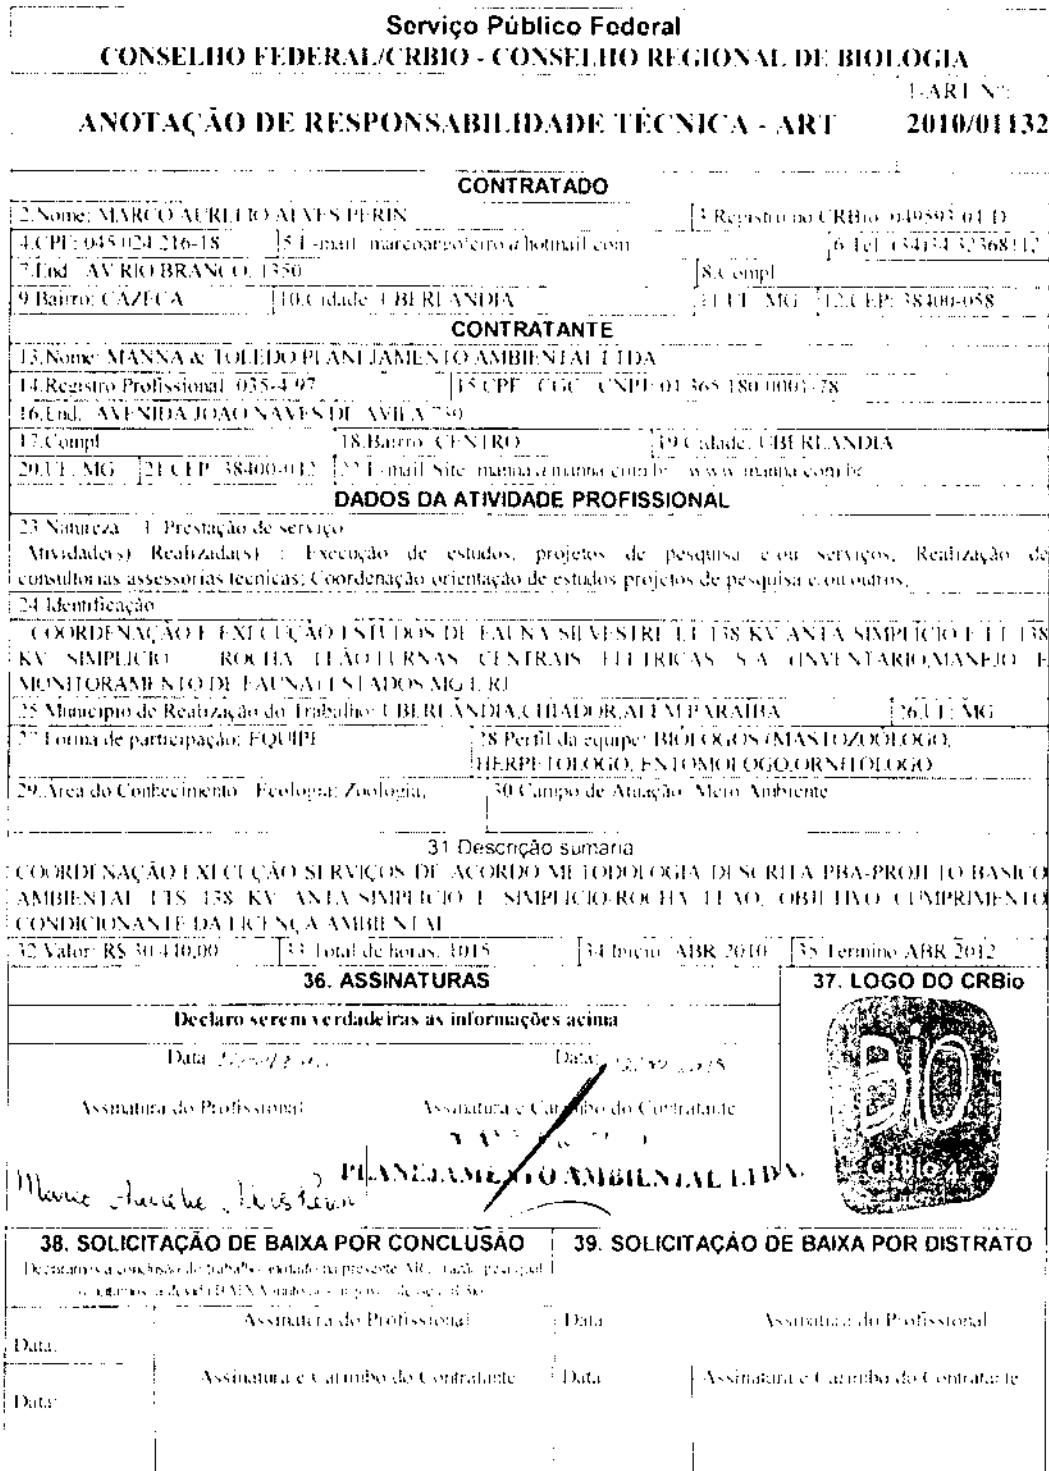 Serviço Público Federal
CONSELHO FEDERAL/CRBIO - CONSELHO REGIONAL DE BIOLOGIA
1-ART Nº:
ANOTAÇÃO DE RESPONSABILIDADE TÉCNICA - ART 2010/01132
CONTRATADO
2.Nome: MARCO AURELIO ALVES PERIN 3.Registro no CRBio: 049593/04-D
4.CPF: 045.024.216-18 5.E-mail: marcoargoleiro@hotmail.com 6.Tel:
7.End.: AV RIO BRANCO, 1350 8.Compl.:
9.Bairro: CAZECA 10.Cidade: UBERLANDIA 11.UF: MG 12.CEP: 38400-058
CONTRATANTE
13.Nome: MANNA & TOLEDO PLANEJAMENTO AMBIENTAL LTDA
14.Registro Profissional: 035-4/97 15.CPF / CGC / CNPJ: 01.365.180/0001-78
16.End.: AVENIDA JOAO NAVES DE AVILA 730
17.Compl.: 18.Bairro: CENTRO 19.Cidade: UBERLANDIA
20.UF: MG 21.CEP: 38400-042 22.E-mail/Site: manna@manna.com.br / www.manna.com.br
DADOS DA ATIVIDADE PROFISSIONAL
23.Natureza : 1. Prestação de serviço
Atividade(s) Realizada(s) : Execução de estudos, projetos de pesquisa e/ou serviços; Realização de
consultorias/assessorias técnicas; Coordenação/orientação de estudos/projetos de pesquisa e/ou outros;
24.Identificação
COORDENAÇÃO E EXECUÇÃO ESTUDOS DE FAUNA SILVESTRE LT 138 KV ANTA SIMPLICIO E LT 138
KV SIMPLICIO - ROCHA LEÃO/FURNAS CENTRAIS ELETRICAS S/A (INVENTARIO,MANEJO E
MONITORAMENTO DE FAUNA) ESTADOS MG E RJ
25.Municipio de Realização do Trabalho: UBERLÂNDIA,CHIADOR,ALEM PARAÍBA 26.UF: MG
27.Forma de participação: EQUIPE 28.Perfil da equipe: BIÓLOGOS (MASTOZOÓLOGO,
HERPETOLOGO, ENTOMOLOGO,ORNITOLOGO
29.Area do Conhecimento: Ecologia; Zoologia; 30.Campo de Atuação: Meio Ambiente
31.Descrição sumaria
COORDENAÇÃO/EXECUÇÃO SERVIÇOS DE ACORDO METODOLOGIA DESCRITA PBA-PROJETO BASICO
AMBIENTAL LTS 138 KV ANTA-SIMPLICIO E SIMPLICIO-ROCHA LEAO, OBJETIVO CUMPRIMENTO
CONDICIONANTE DA LICENÇA AMBIENTAL
32.Valor: R$ 30.440,00 33.Total de horas: 1015 34.Inicio: ABR/2010 35.Termino ABR/2012
36. ASSINATURAS 37. LOGO DO CRBio
Declaro serem verdadeiras as informações acima
Data: Data:
Assinatura do Profissional Assinatura e Carimbo do Contratante
PLANEJAMENTO AMBIENTAL LTDA.
Bio
CRBio-4
38. SOLICITAÇÃO DE BAIXA POR CONCLUSÃO 39. SOLICITAÇÃO DE BAIXA POR DISTRATO
Declaramos a conclusão do trabalho anotado na presente ART, razão pela qual
Assinatura do Profissional Data: Assinatura do Profissional
Data:
Assinatura e Carimbo do Contratante Data: Assinatura e Carimbo do Contratante
Data: